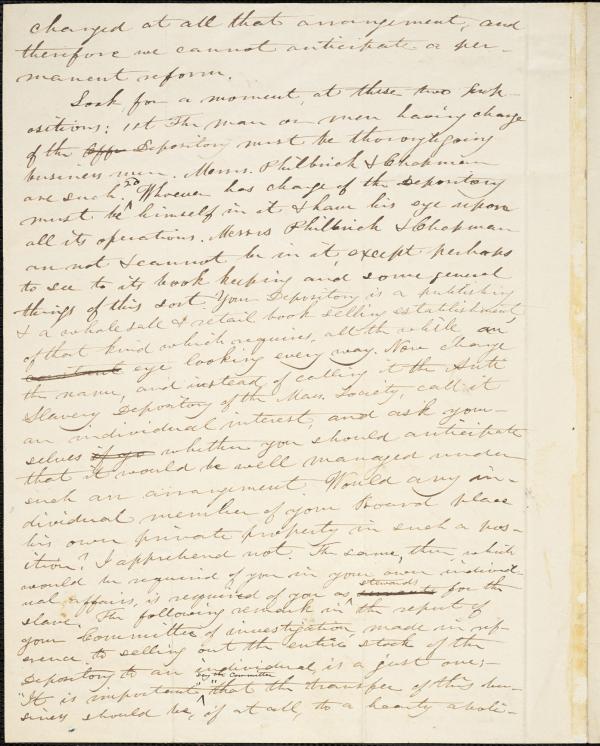 charged at all that arrangement, and
therefore we cannot anticipate a per-
manent reform.
Look for a moment, at these two sup-
ositions: 1st The man or men having charge
of the Depository must be thoroughgoing
business men. Messrs. Philbrick & Chapman
are such. 2d Whoever has charge of the Depository
must be himself in it & have his eye upon
all its operations. Messrs Philbrick & Chapman
are not & cannot be in it except perhaps
to see to its book keeping and some general
things of this sort. Your Depository is a publishing
& a whole sale & retail book selling establishment,
of that kind which requires, all the while an
constant eye looking every way. Now change
the name, and instead of calling it the Anti
Slavery Depository of the Mass. Society, call it
an individual interest, and ask your-
selves if go whether you should anticipate
that it would be well managed under
such an arrangement. Would any in-
dividual member of your Board place
his own private property in such a pos-
ition? I apprehend not. The same, then which
would be required of you in your own individ-
ual affairs, is required of you as stewards for the
slave. The following remark in the report of
your Committee of investigation, made in ref-
erence to selling out the entire stock of the
Depository to an individual is a just one;-
"It is important" say the Committee "that the transfer of this bu-
siness should be, if at all, to a hearty aboli-